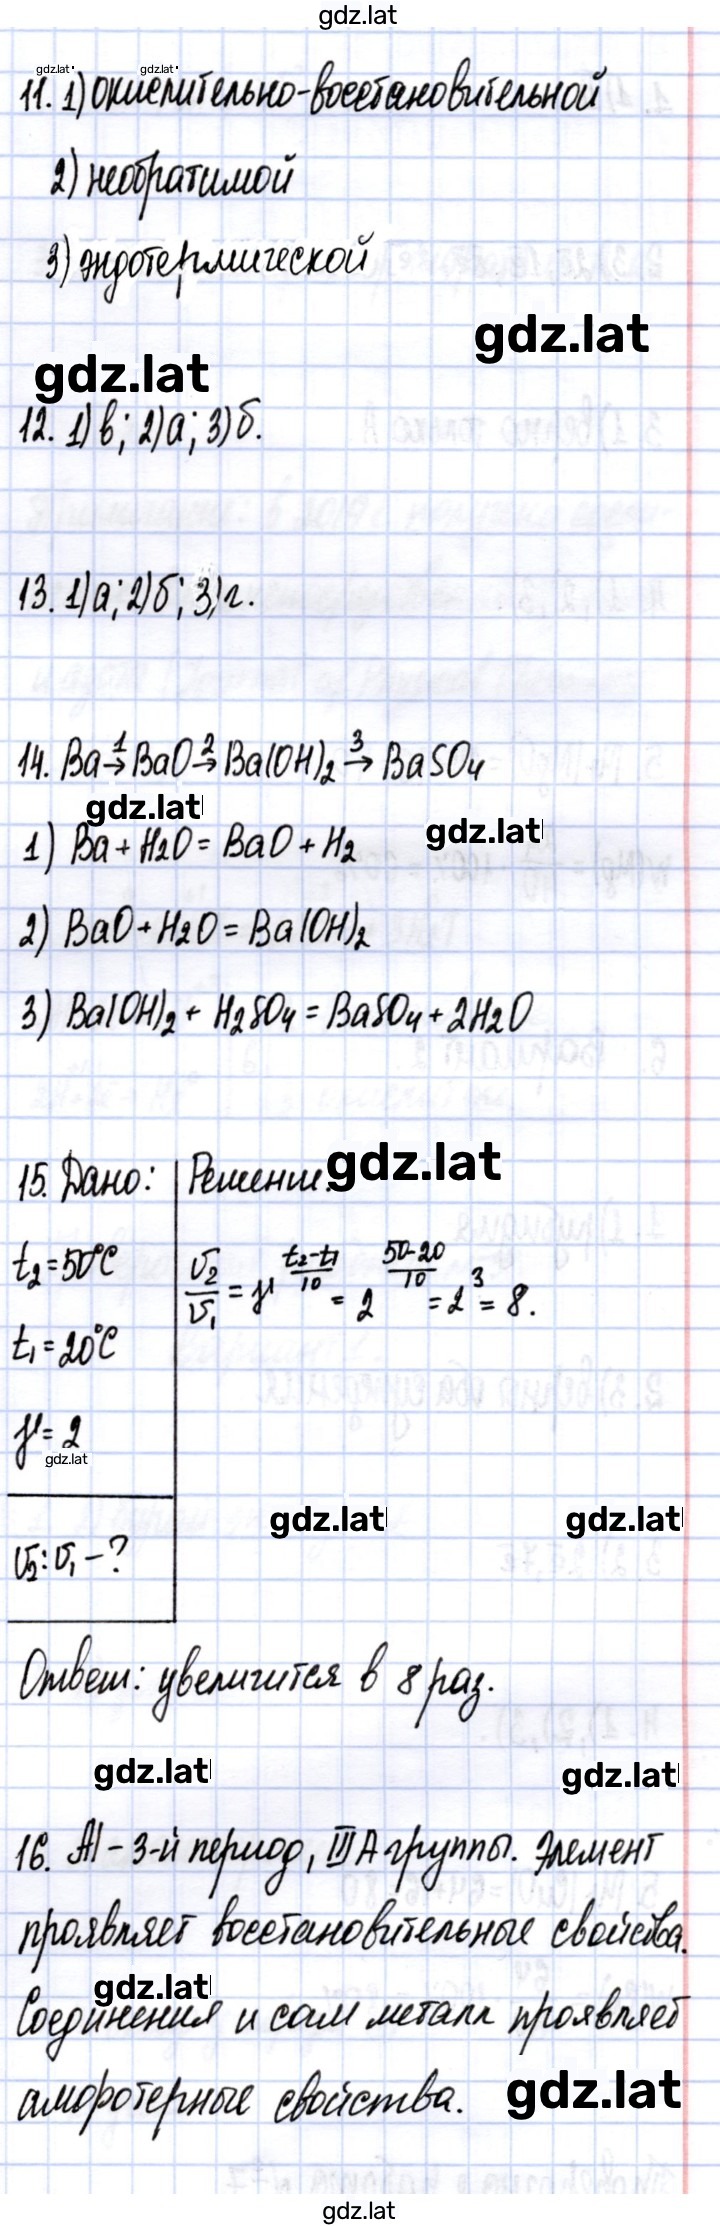 gdz.lat
gdz.lat gdz.lat
11. 1) окислительно-восстановительной
2) необратимой
3) эндотермической
gdz.lat
gdz.lat
12. 1) в; 2) а; 3) б.
13. 1) а; 2) б; 3) г.
14. Ba →¹ BaO →² Ba(OH)₂ →³ BaSO₄
gdz.lat
gdz.lat
1) Ba + H₂O = BaO + H₂
2) BaO + H₂O = Ba(OH)₂
3) Ba(OH)₂ + H₂SO₄ = BaSO₄ + 2H₂O
15. Дано: Решение.
gdz.lat
t₂ = 50°C
υ₂/υ₁ = γ^((t₂-t₁)/10) = 2^((50-20)/10) = 2³ = 8.
t₁ = 20°C
γ = 2
gdz.lat
gdz.lat gdz.lat
υ₂ : υ₁ - ?
Ответ: увеличится в 8 раз.
gdz.lat gdz.lat
16. Al - 3-й период, III A группы. Элемент
проявляет восстановительные свойства.
gdz.lat
Соединения и сам металл проявляет
амфотерные свойства.
gdz.lat
gdz.lat